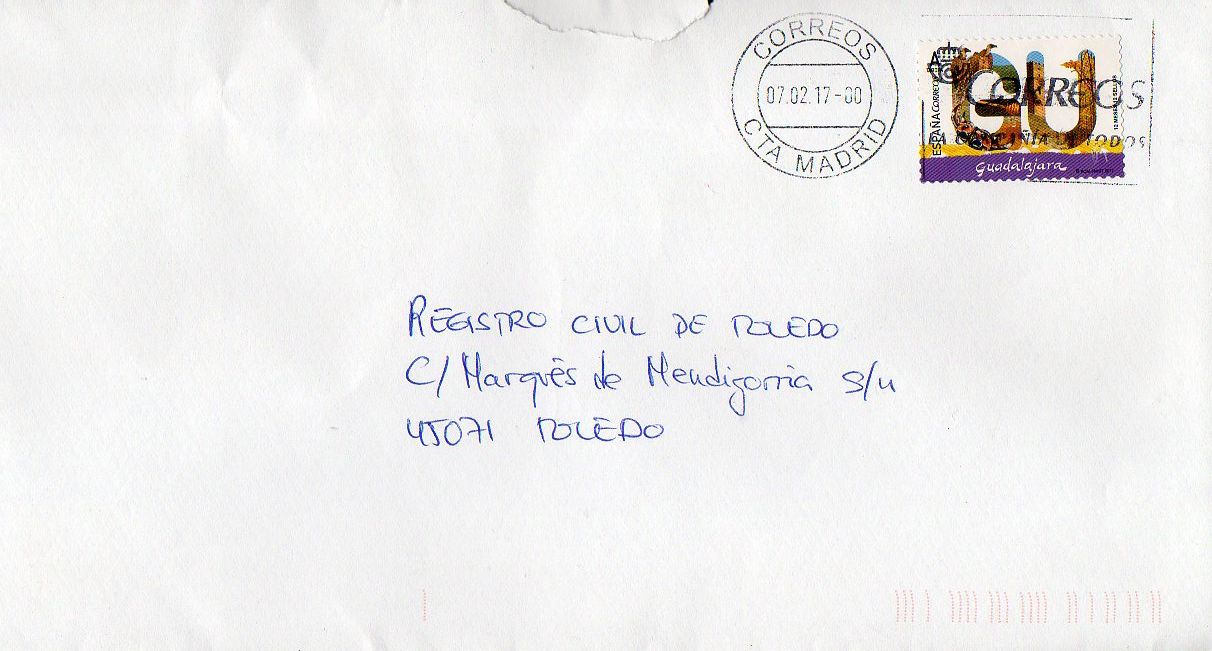 CORREOS
07.02.17-00
CTA MADRID
A
ESPAÑA CORREOS
GU
CORREOS
12 MESES 12 SELLOS
LA COMPAÑÍA DE TODOS
Guadalajara
REGISTRO CIVIL DE TOLEDO
C/ Marqués de Mendigorria S/n
45071 TOLEDO